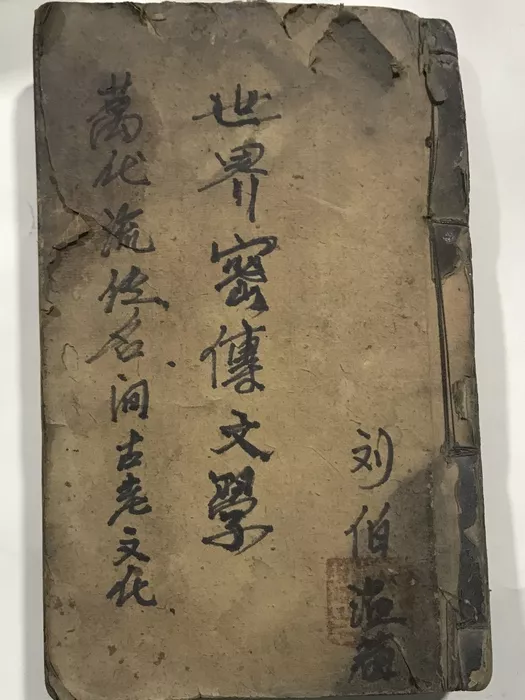 刘伯温
世界密傳文學
萬化流传名间古老文化